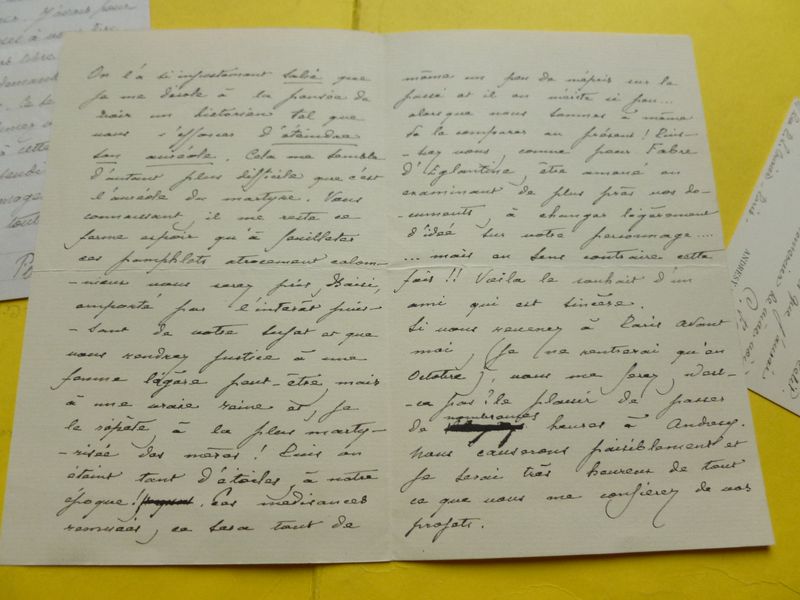 On l'a si injustement salie que
je me désole à la pensée de
voir un historien tel que
vous s'efforcer d'éteindre
son auréole. Cela me semble
d'autant plus difficile que c'est
l'auréole du martyre. Vous
connaissant, il me reste ce
ferme espoir qu'à feuilleter
ces pamphlets atrocement calom-
-nieux vous serez pris, saisi,
emporté par l'intérêt puis-
-sant de votre sujet et que
vous rendrez justice à une
femme légère peut-être, mais
à une vraie reine et, je
le répète, à la plus marty-
-risée des mères! Puis on
éteint tant d'étoiles, à notre
époque! Ces médisances
remuées, ce sera tout de
même un peu de mépris sur le
passé et il en mérite si peu...
alors que nous sommes à même
de le comparer au présent! Puis-
-siez vous, comme pour Fabre
d'Eglantine, être amené en
examinant de plus près vos do-
-cuments, à changer légèrement
d'idée sur votre personnage....
... mais en sens contraire cette
fois!! Voilà le souhait d'un
ami qui est sincère.
Si vous revenez à Paris avant
moi, (je ne rentrerai qu'en
Octobre) vous me ferez, n'est-
-ce pas! le plaisir de passer
de nombreuses heures à Andrésy.
Nous causerons paisiblement et
je serai très heureux de tout
ce que vous me confierez de vos
projets.
ANDRESY